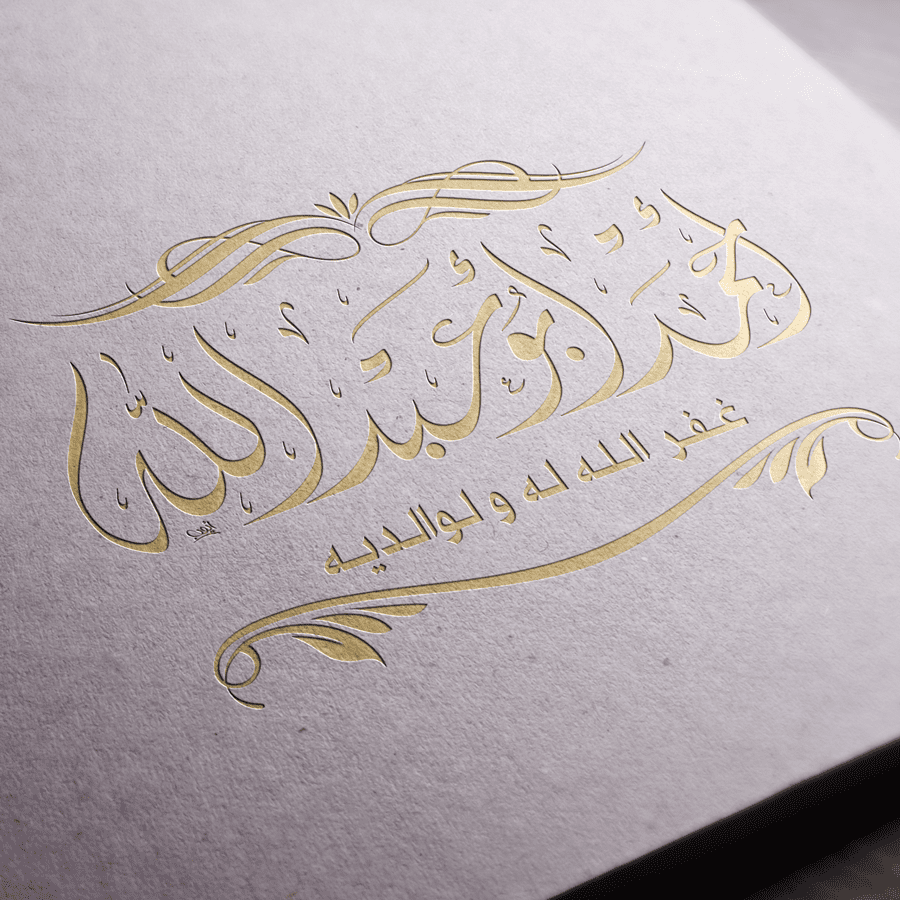 أحمد أبو عبد الله
غفر الله له ولوالديه